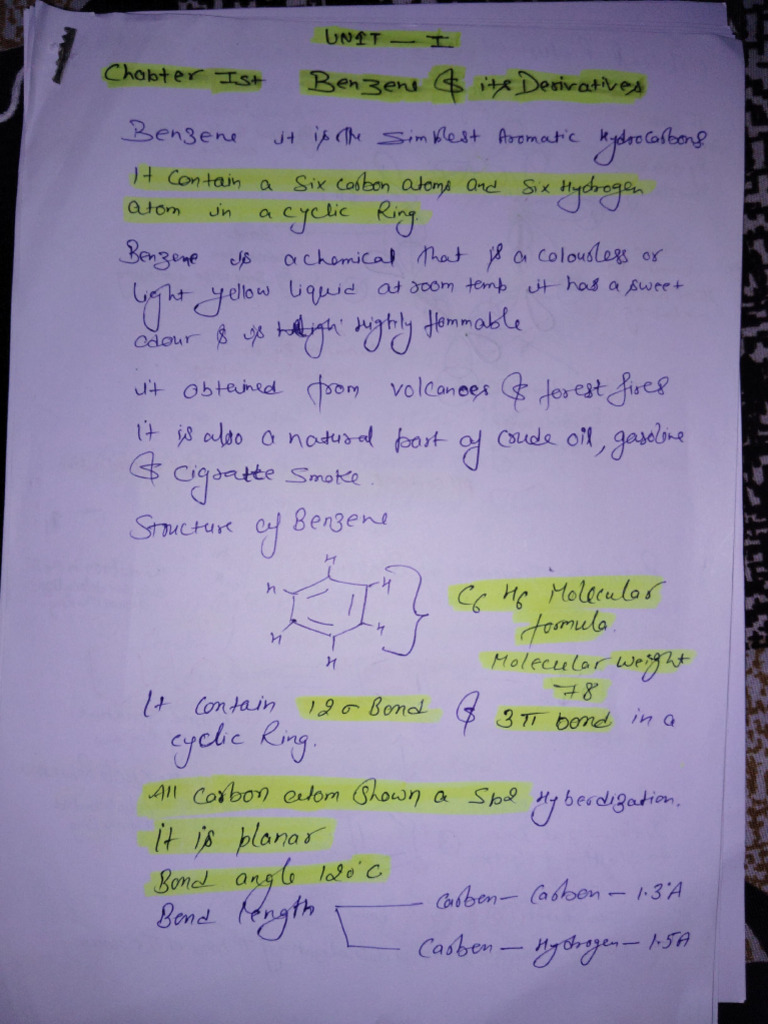 UNIT — I
Chapter Ist Benzene & its Derivatives
Benzene it is the Simplest Aromatic Hydrocarbons
It Contain a Six carbon atoms and Six Hydrogen
atom in a cyclic Ring.
Benzene is a chemical that is a colourless or
light yellow liquid at room temp it has a sweet
odour & is highly flammable
it obtained from volcanoes & forest fires
it is also a natural part of crude oil, gasoline
& cigratte Smoke.
Structure of Benzene
H
H H
H H
H
C6 H6 Molecular
formula.
Molecular weight
78
It Contain 12 σ Bond & 3 π bond in a
cyclic Ring.
All Carbon atom Shown a Sp2 Hyberdization.
it is planar
Bond angle 120°C
Bond length
Carben — Carbon — 1.3°A
Carben — Hydrogen — 1.5A